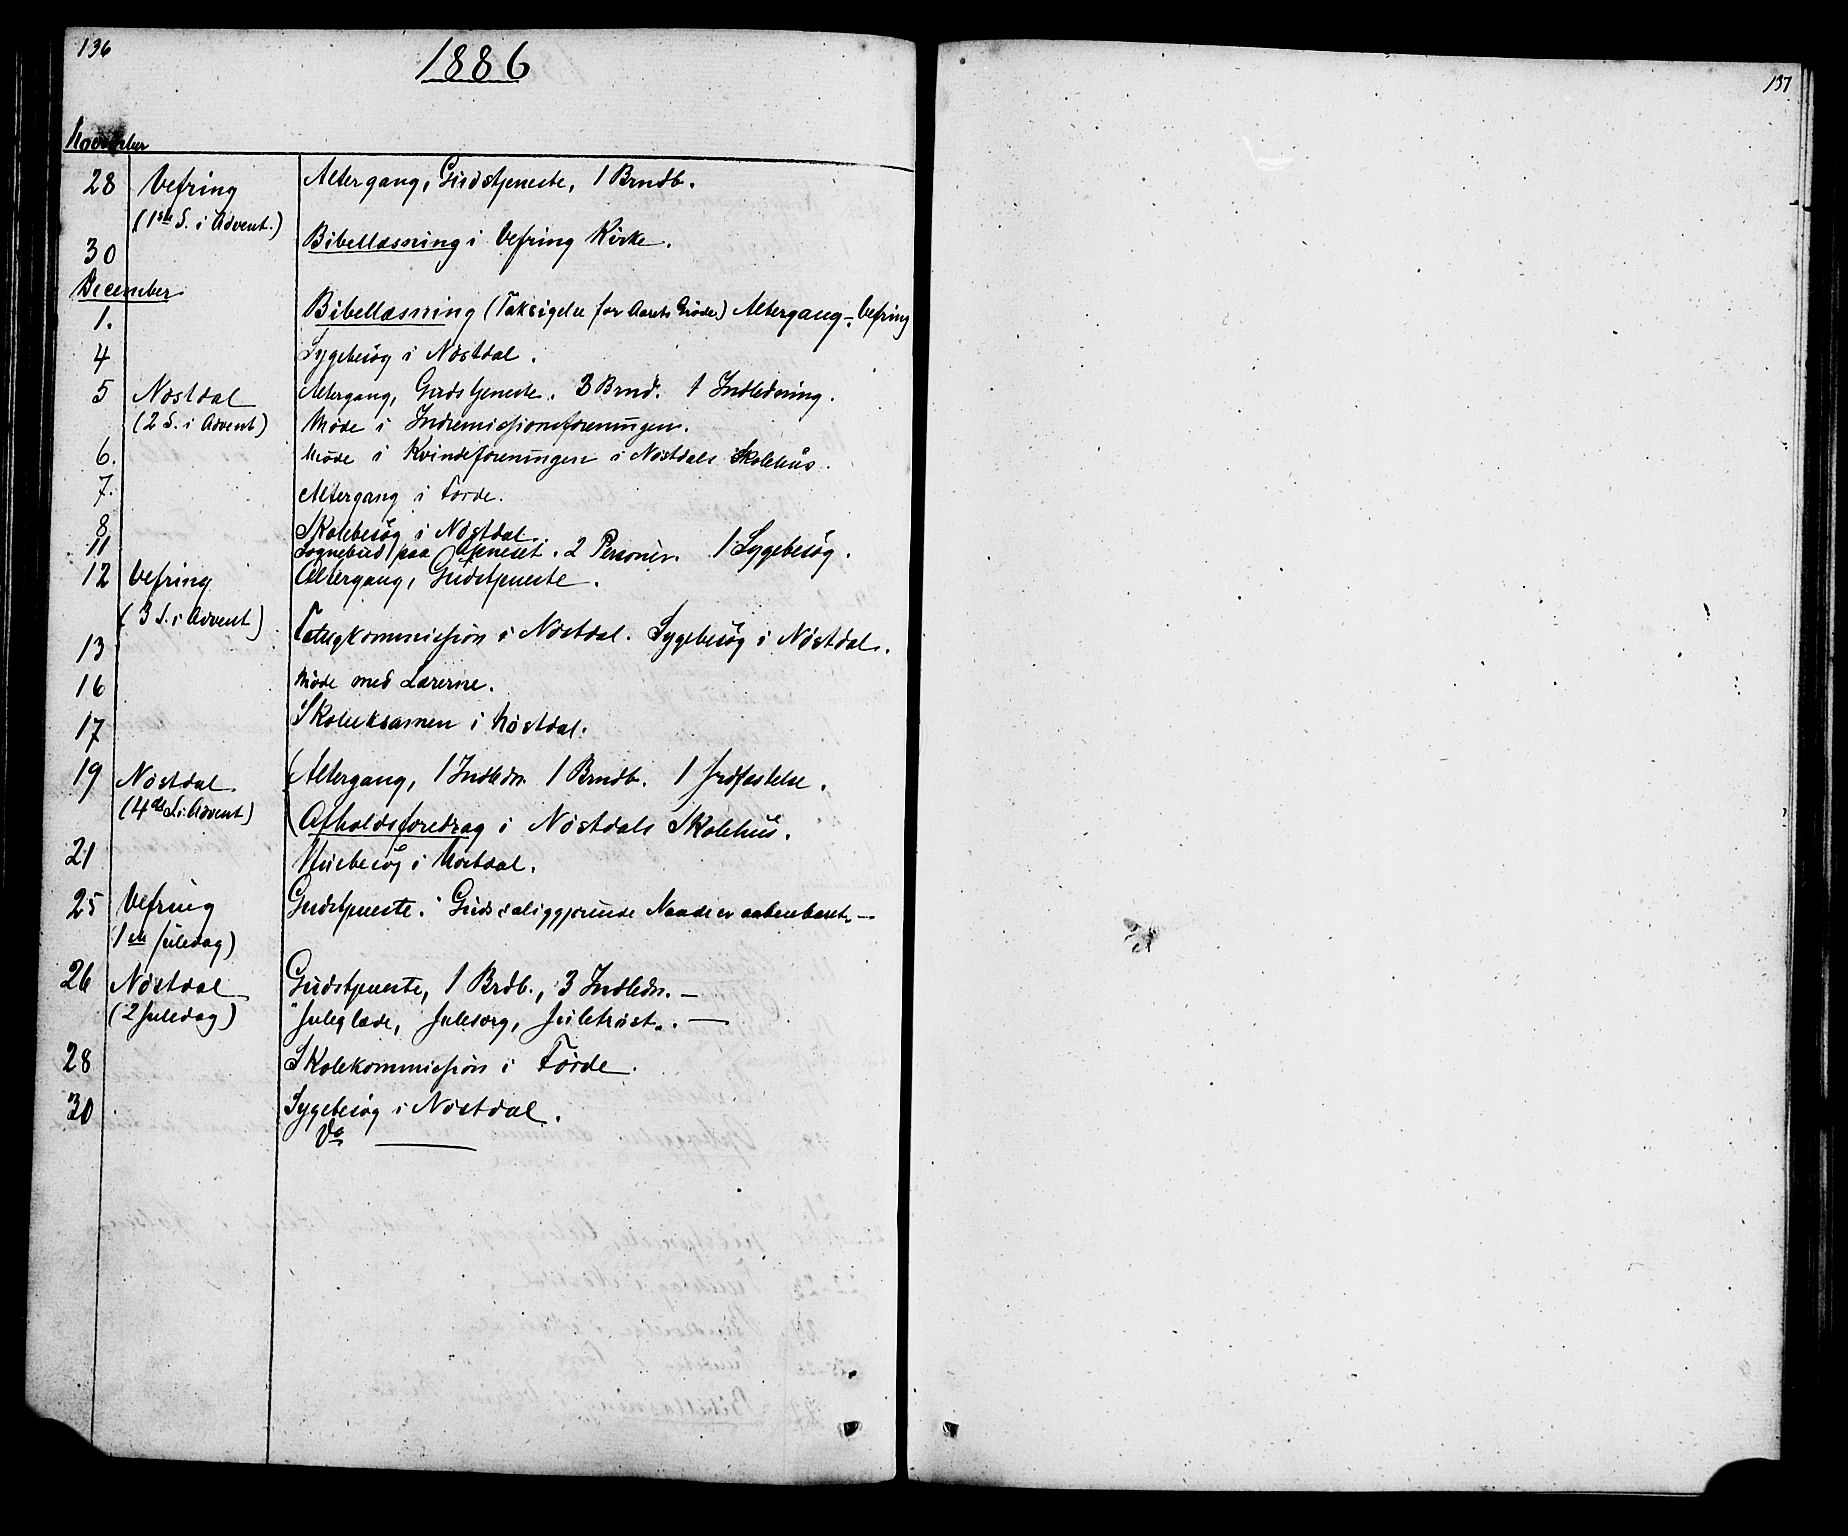 136
1886
November
28 Vefring Altergang, Gudstjeneste, 1 Brndb.
(1ste S. i Advent.)
30 Bibellæsning i Vefring Kirke.
December
1. Bibellæsning (Taksigelse for Aarets Grøde.) Altergang - Vefring
4 Sygebesøg i Nøstdal.
5 Nøstdal Altergang, Gudstjeneste. 3 Brnd. 1 Indledning.
(2 S. i Advent) Møde i Indremissionsforeningen.
6. Møde i Kvindeforeningen i Nøstdals Skolehus.
7. Altergang i Førde.
8 Skolebesøg i Nøstdal.
11 Sognebud paa 2 Personer. 1 Sygebesøg.
12 Vefring Altergang, Gudstjeneste.
(3 S. i Advent)
13 Fattigkommission i Nøstdal. Sygebesøg i Nøstdal.
16 Møde med Lærerne.
17 Skoleeksamen i Nøstdal.
19 Nøstdal. Altergang, 1 Indledn. 1 Brndb. 1 Jrdfæstelse.
(4de S. i Advent) Afholdsforedrag i Nøstdals Skolehus.
21 Husbesøg i Nøstdal.
25 Vefring Gudstjeneste. "Guds saliggjørende Naade er aabenbaret" —
1ste Juledag)
26 Nøstdal Gudstjeneste, 1 Brdb., 3 Indledn. —
(2 Juledag) "Juleglæde, Julesorg, Juletrøst". —
28 Skolekommission i Førde.
30 Sygebesøg i Nøstdal.
Do —
137